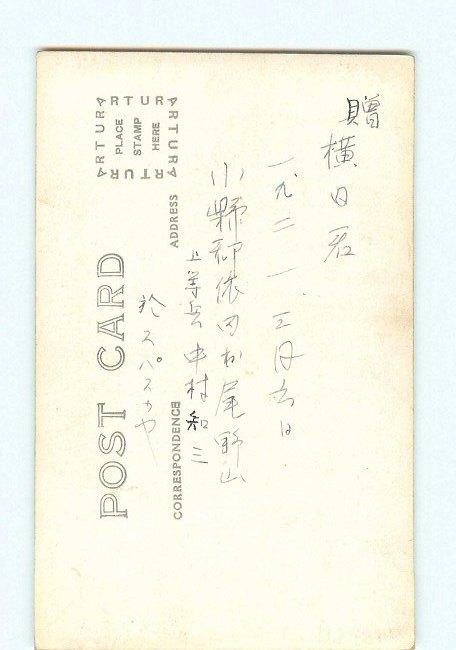 贈
横田君
一九二一、三月六日
小縣郡依田村尾野山
上等兵 中村和三
於スパスカヤ
POST CARD
ADDRESS
CORRESPONDENCE
PLACE
STAMP
HERE
ARTURA
ARTURA
ARTURA
ARTURA